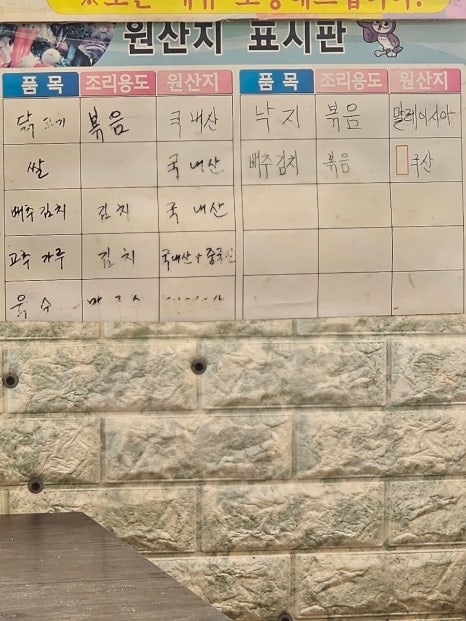 원산지 표시판
품 목 조리용도 원산지 품 목 조리용도 원산지
닭고기 볶음 국내산 낙지 볶음 말레이시아
쌀 국내산 배추김치 볶음 국산
배추김치 김치 국내산
고추가루 김치 국내산+중국산
육수